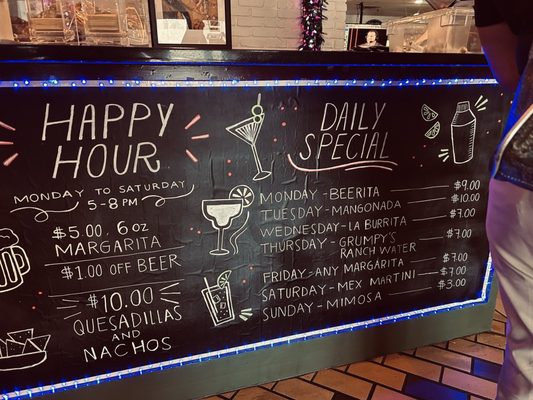 HAPPY
HOUR
MONDAY TO SATURDAY
5-8 PM
$5.00, 6oz
MARGARITA
$1.00 OFF BEER
$10.00
QUESADILLAS
AND
NACHOS
DAILY
SPECIAL
MONDAY - BEERITA $9.00
TUESDAY - MANGONADA $10.00
WEDNESDAY - LA BURRITA $7.00
THURSDAY - GRUMPY'S $7.00
RANCH WATER
FRIDAY - ANY MARGARITA $7.00
SATURDAY - MEX MARTINI $7.00
SUNDAY - MIMOSA $3.00